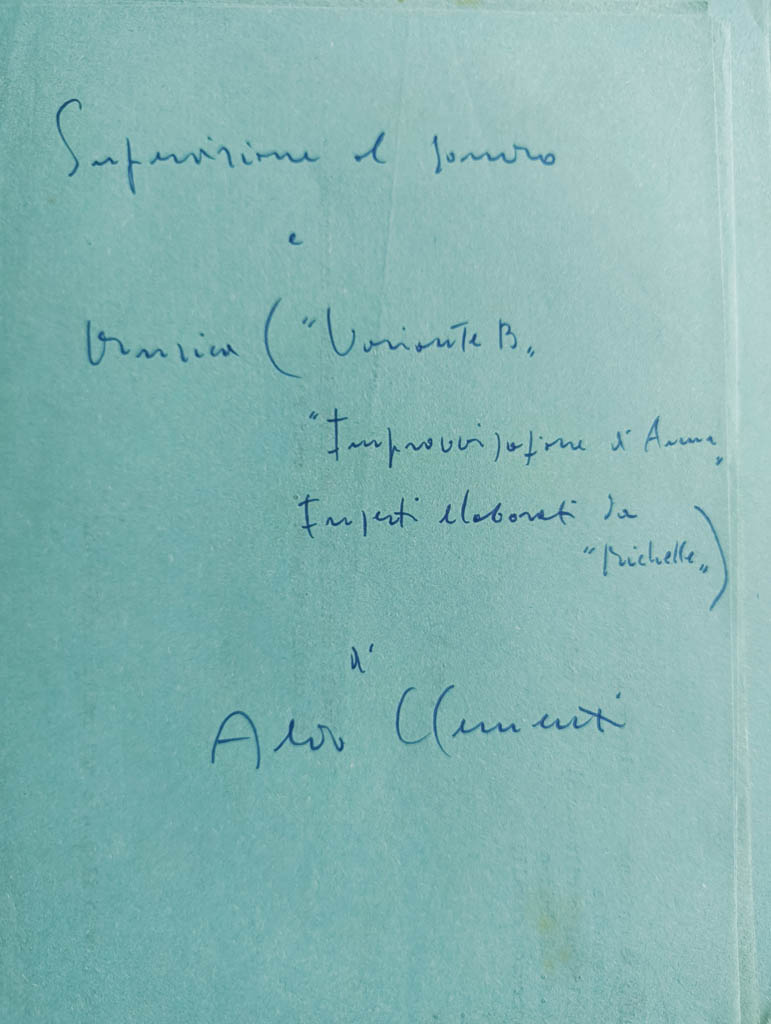 Supervisione al sonoro
e
Musica ("Variante B"
"Improvvisazione di Anna"
Inserti elaborati da
"Michelle")
di
Aldo Clementi